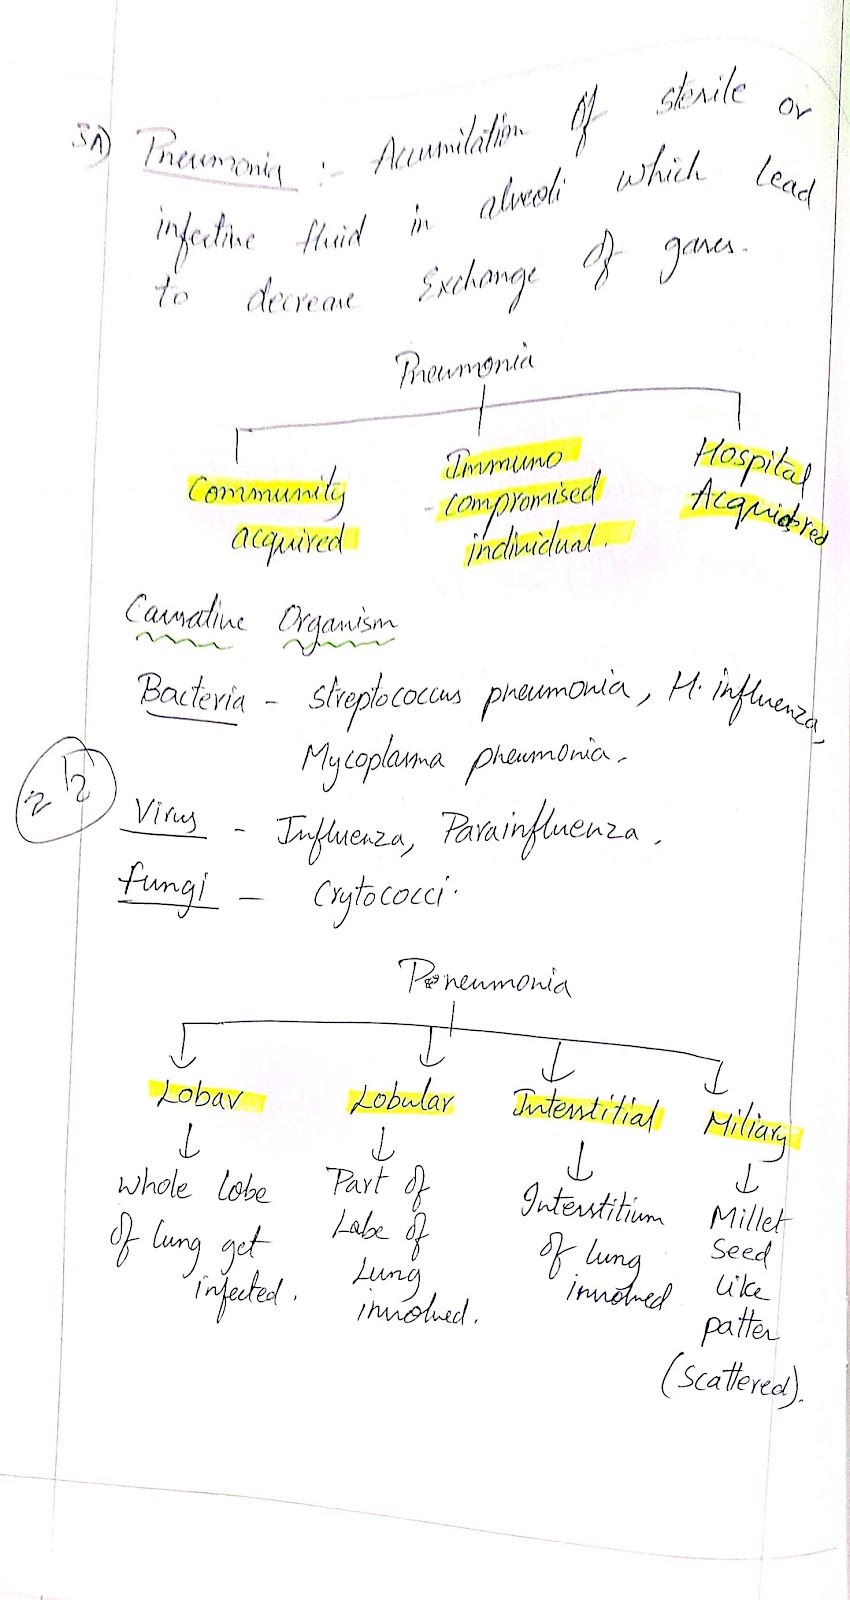 3A) Pneumonia :- Accumilation of sterile or
infective fluid in alveoli which lead
to decrease Exchange of gases.
Pneumonia
Community acquired
Immuno - compromised individual.
Hospital Acquired
Causative Organism
Bacteria - Streptococcus pneumonia, H. influenza,
Mycoplasma pneumonia.
2 1/2
Virus - Influenza, Parainfluenza.
fungi - Crytococci.
Pneumonia
Lobar
Lobular
Interstitial
Miliary
whole lobe
of lung get
infected.
Part of
Lobe of
Lung
involved.
Interstitium
of lung
involved
Millet
seed
like
patter
(scattered).